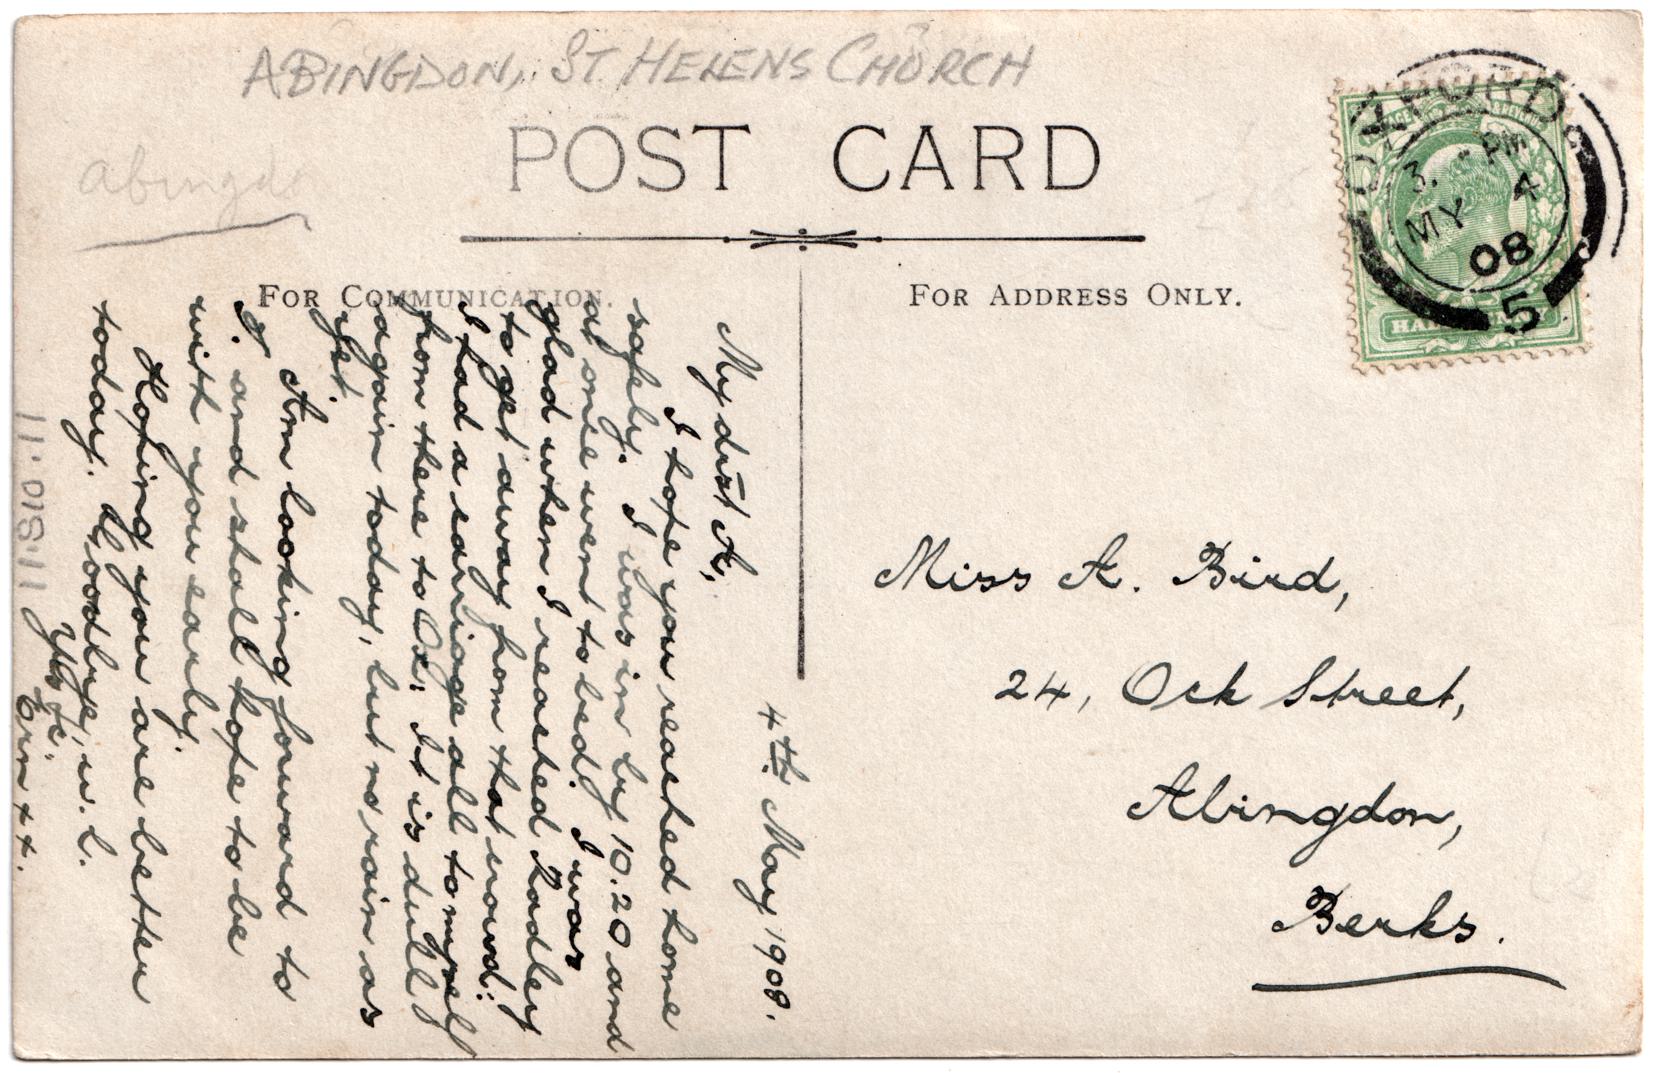 ABINGDON, ST HELENS CHURCH
POST CARD
abingdo
FOR COMMUNICATION.
FOR ADDRESS ONLY.
OXFORD
3. PM
MY 4
08
5
4th May 1908.
My dst A,
I hope you reached home
safely. I was in by 10.20 and
at once went to bed. I was
glad when I reached Radley
to get away from that crowd.
I had a carriage all to myself
from there to Ox. It is dull
again today, but no rain as
yet.
Am looking forward to
8, and shall hope to be
with you early.
Hoping you are better
today. Goodbye, w. l.
Yrs &c.
Orn xx.
11810:11
Miss A. Bird,
24, Ock Street,
Abingdon,
Berks.